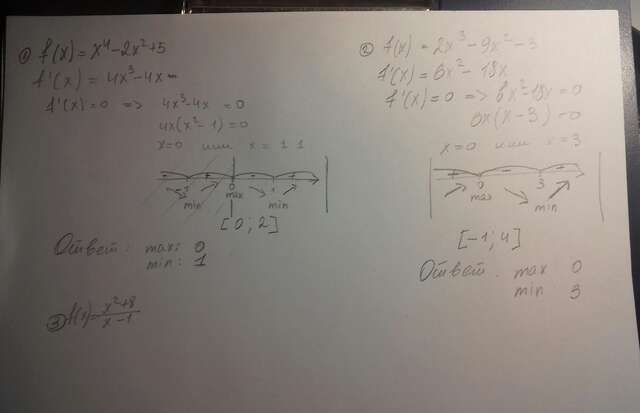 ① f(x) = x⁴-2x²+5
f'(x) = 4x³-4x
f'(x)=0 => 4x³-4x = 0
4x(x²-1)=0
x=0 или x = ±1
- + - +
-1 0 1
min max min
[0; 2]
Ответ: max: 0
min: 1
② f(x) = 2x³-9x²-3
f'(x) = 6x²-18x
f'(x)=0 => 6x²-18x = 0
6x(x-3)=0
x=0 или x=3
+ - +
0 3
max min
[-1; 4]
Ответ. max 0
min 3
③ f(x)=x²+8/x-1